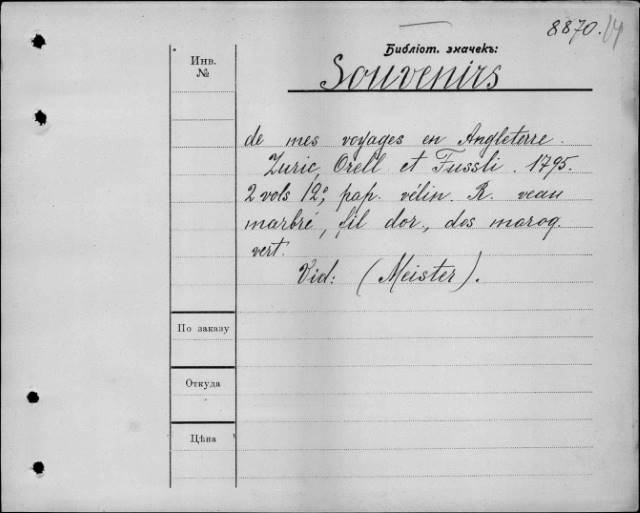 8870.
Библіот. значекъ:
Инв.
№
Souvenirs
de mes voyages en Angleterre.
Zuric, Orell et Fussli. 1795.
2 vols 12°, pap. vélin. R. veau
marbré, fil dor., dos maroq.
vert.
Vid: (Meister).
По заказу
Откуда
Цѣна